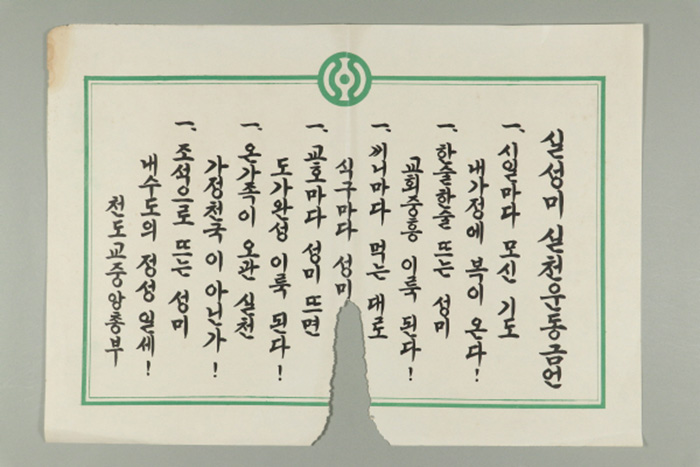 실성미 실천운동금언
一. 시일마다 모신 기도
내가정에 복이 온다!
一. 한술한술 뜨는 성미
교회중흥 이룩 된다!
一. 끼니마다 먹는 대로
식구마다 성미
一. 교호마다 성미 뜨면
도가완성 이룩 된다!
一. 온가족이 오관 실천
가정천국 이 아닌가!
一. 조석으로 뜨는 성미
내수도의 정성 일세!
천도교중앙총부